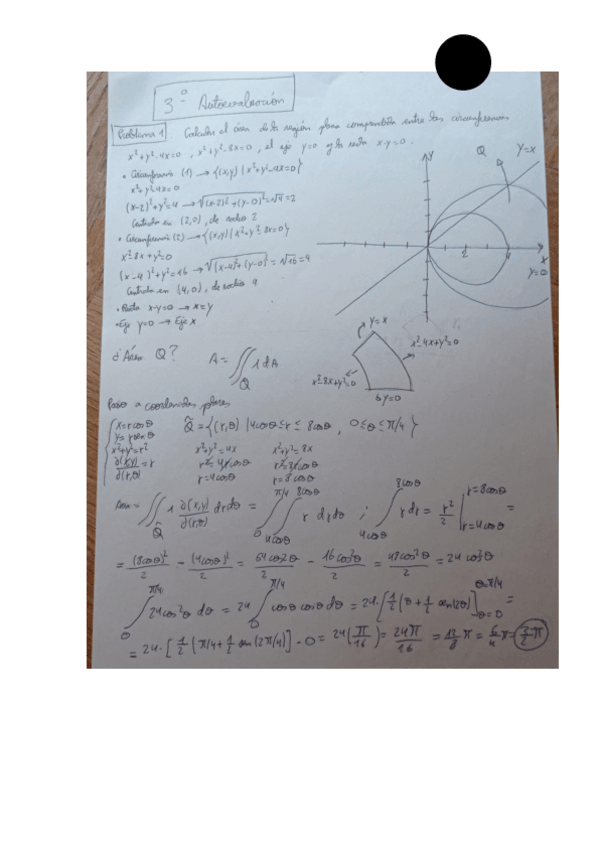 3º Autoevaluación
Problema 1 Calcular el área de la región plana comprendida entre las circunferencias
x²+y²-4x=0 , x²+y²-8x=0 , el eje y=0 y la recta x-y=0.
• Circunferencia (1) → {(x,y) | x²+y²-4x=0}
x²+y²-4x=0
(x-2)²+y²=4 → √(x-2)²+(y-0)²=√4=2
Centrada en (2,0), de radio 2
• Circunferencia (2) → {(x,y) | x²+y²-8x=0}
x²-8x+y²=0
(x-4)²+y²=16 → √(x-4)²+(y-0)²=√16=4
Centrada en (4,0), de radio 4
• Recta x-y=0 → x=y
• Eje y=0 → Eje x
Y
Q
y=x
2
4
x
y=0
¿Área Q? A = ∬ 1 dA
Q
y=x
x²-4x+y²=0
x²-8x+y²=0
y=0
Paso a coordenadas polares
x=r cosθ
y=r senθ
x²+y²=r²
∂(x,y)/∂(r,θ) = r
Q̃ = {(r,θ) | 4cosθ ≤ r ≤ 8cosθ , 0≤θ≤π/4}
x²+y²=4x x²+y²=8x
r²=4r cosθ r²=8r cosθ
r=4cosθ r=8cosθ
Area = ∬Q̃ 1 ∂(x,y)/∂(r,θ) drdθ = ∫₀^π/4 ∫4cosθ^8cosθ r drdθ ; ∫4cosθ^8cosθ r dr = r²/2 | r=8cosθ r=4cosθ =
= (8cosθ)²/2 - (4cosθ)²/2 = 64cos²θ/2 - 16cos²θ/2 = 48cos²θ/2 = 24 cos²θ
∫₀^π/4 24cos²θ dθ = 24 ∫₀^π/4 cosθ cosθ dθ = 24·[1/2(θ+1/2 sen(2θ)]θ=0^θ=π/4 =
= 24·[1/2(π/4+1/2 sen(2π/4)] - 0 = 24(π/16) = 24π/16 = 12/8 π = 6/4 π = 3/2 π